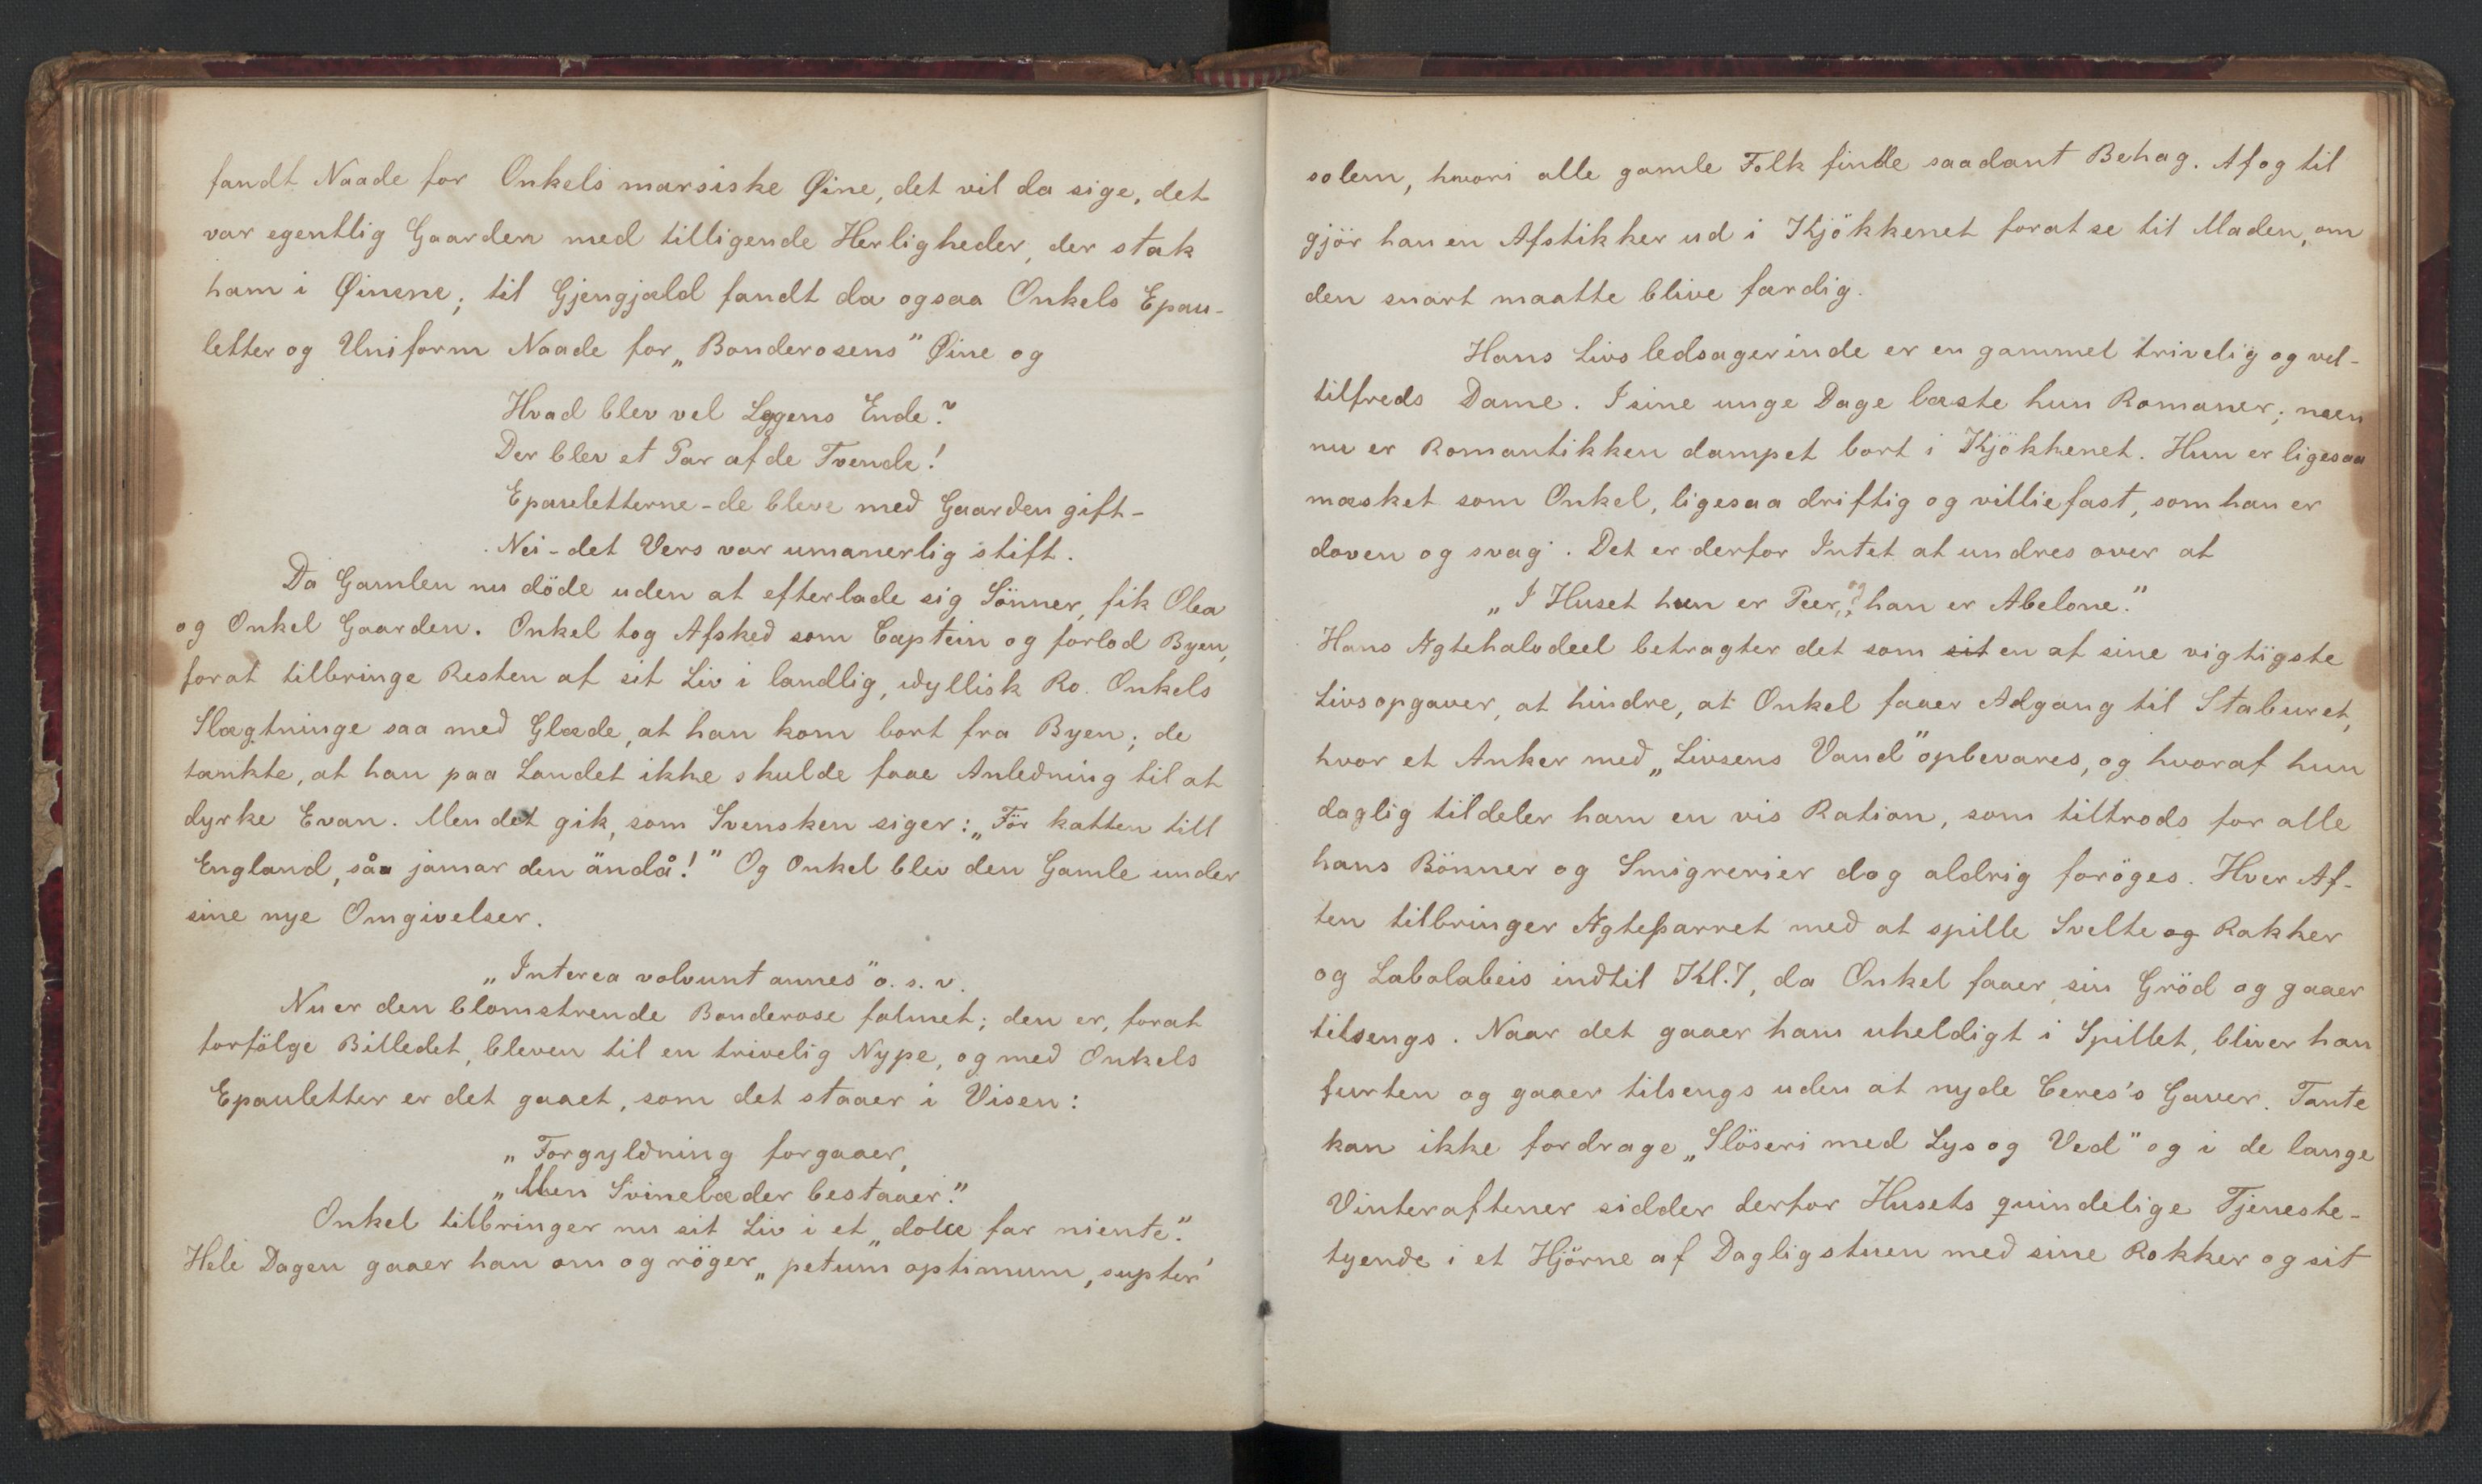 fandt Naade for Onkels marsiske Øine, det vil da sige, det
var egentlig Gaarden med tilligende Herligheder, der stak
ham i Øinene; til Gjengjæld fandt da ogsaa Onkels Epau-
letter og Uniform Naade for „Bonderosens" Øine og
Hvad blev vel Legens Ende?
Der blev et Par af de Tvende!
Epauletterne - de bleve med Gaarden gift -
Nei - det Vers var umanerlig stift.
Da Gamlen nu döde uden at efterlade sig Sönner, fik Olea
og Onkel Gaarden. Onkel tog Afsked som Captein og forlod Byen,
forat tilbringe Resten af sit Liv i landlig, idyllisk Ro. Onkels
Slægtninge saa med Glæde, at han kom bort fra Byen; de
tænkte, at han paa Landet ikke skulde faae Anledning til at
dyrke Evan. Men det gik, som Svensken siger: „För katten till
England, såa jamar den ändå!" Og Onkel blev den Gamle under
sine nye Omgivelser.
„Interea volvunt annes" o. s. v.
Nu er den blomstrende Bonderose falmet; den er, forat
forfölge Billedet, bleven til en trivelig Nype, og med Onkels
Epauletter er det gaaet, som det staaer i Visen:
„Forgyldning forgaaer,
„Men Svinelæder bestaaer."
Onkel tilbringer nu sit Liv i et „dolce far niente".
Hele Dagen gaaer han om og röger „petum optimum, supter
solem, hvori alle gamle Folk finde saadant Behag. Af og til
gjör han en Afstikker ud i Kjökkenet forat se til Maden, om
den snart maatte blive færdig.
Hans Livsledsagerinde er en gammel trivelig og vel-
tilfreds Dame. I sine unge Dage læste hun Romaner; men
nu er Romantikken dampet bort i Kjökkenet. Hun er ligesaa
mæsket som Onkel, ligesaa driftig og villiefast, som han er
doven og svag. Det er derfor Intet at undres over at
„I Huset hun er Peer, og han er Abelone."
Hans Ægtehalvdeel betragter det som sit en af sine vigtigste
Livsopgaver, at hindre, at Onkel faaer Adgang til Staburet,
hvor et Anker med „Livsens Vand" opbevares, og hvoraf hun
daglig tildeler ham en vis Ration, som tiltrods for alle
hans Bönner og Smigrerier dog aldrig foröges. Hver Af-
ten tilbringer Ægteparret med at spille Svelte og Rakker
og Labolabeis indtil Kl. 7, da Onkel faaer sin Gröd og gaaer
tilsengs. Naar det gaaer ham uheldigt i Spillet, bliver han
furten og gaaer tilsengs uden at nyde Ceres's Gaver. Tante
kan ikke fordrage „Slöseri med Lys og Ved" og i de lange
Vinteraftener sidder derfor Husets quindelige Tjeneste-
tyende i et Hjörne af Dagligstuen med sine Rokker og sit